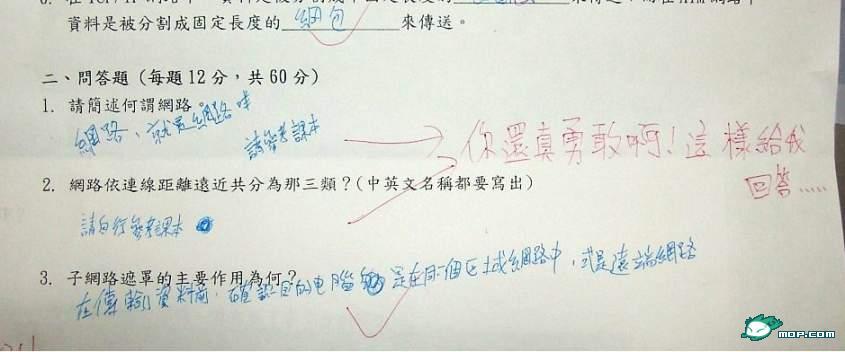 資料是被分割成固定長度的 網包 來傳送。
二、問答題（每題12分，共60分）
1. 請簡述何謂網路。
網路、就是網路咩
請參考課本
你還真勇敢啊！這樣給我
回答.....
2. 網路依連線距離遠近共分為那三類？(中英文名稱都要寫出)
請自行參考課本
3. 子網路遮罩的主要作用為何？
在傳輸資料前，確認目的電腦 是在同個區域網路中，或是遠端網路
MOP.COM